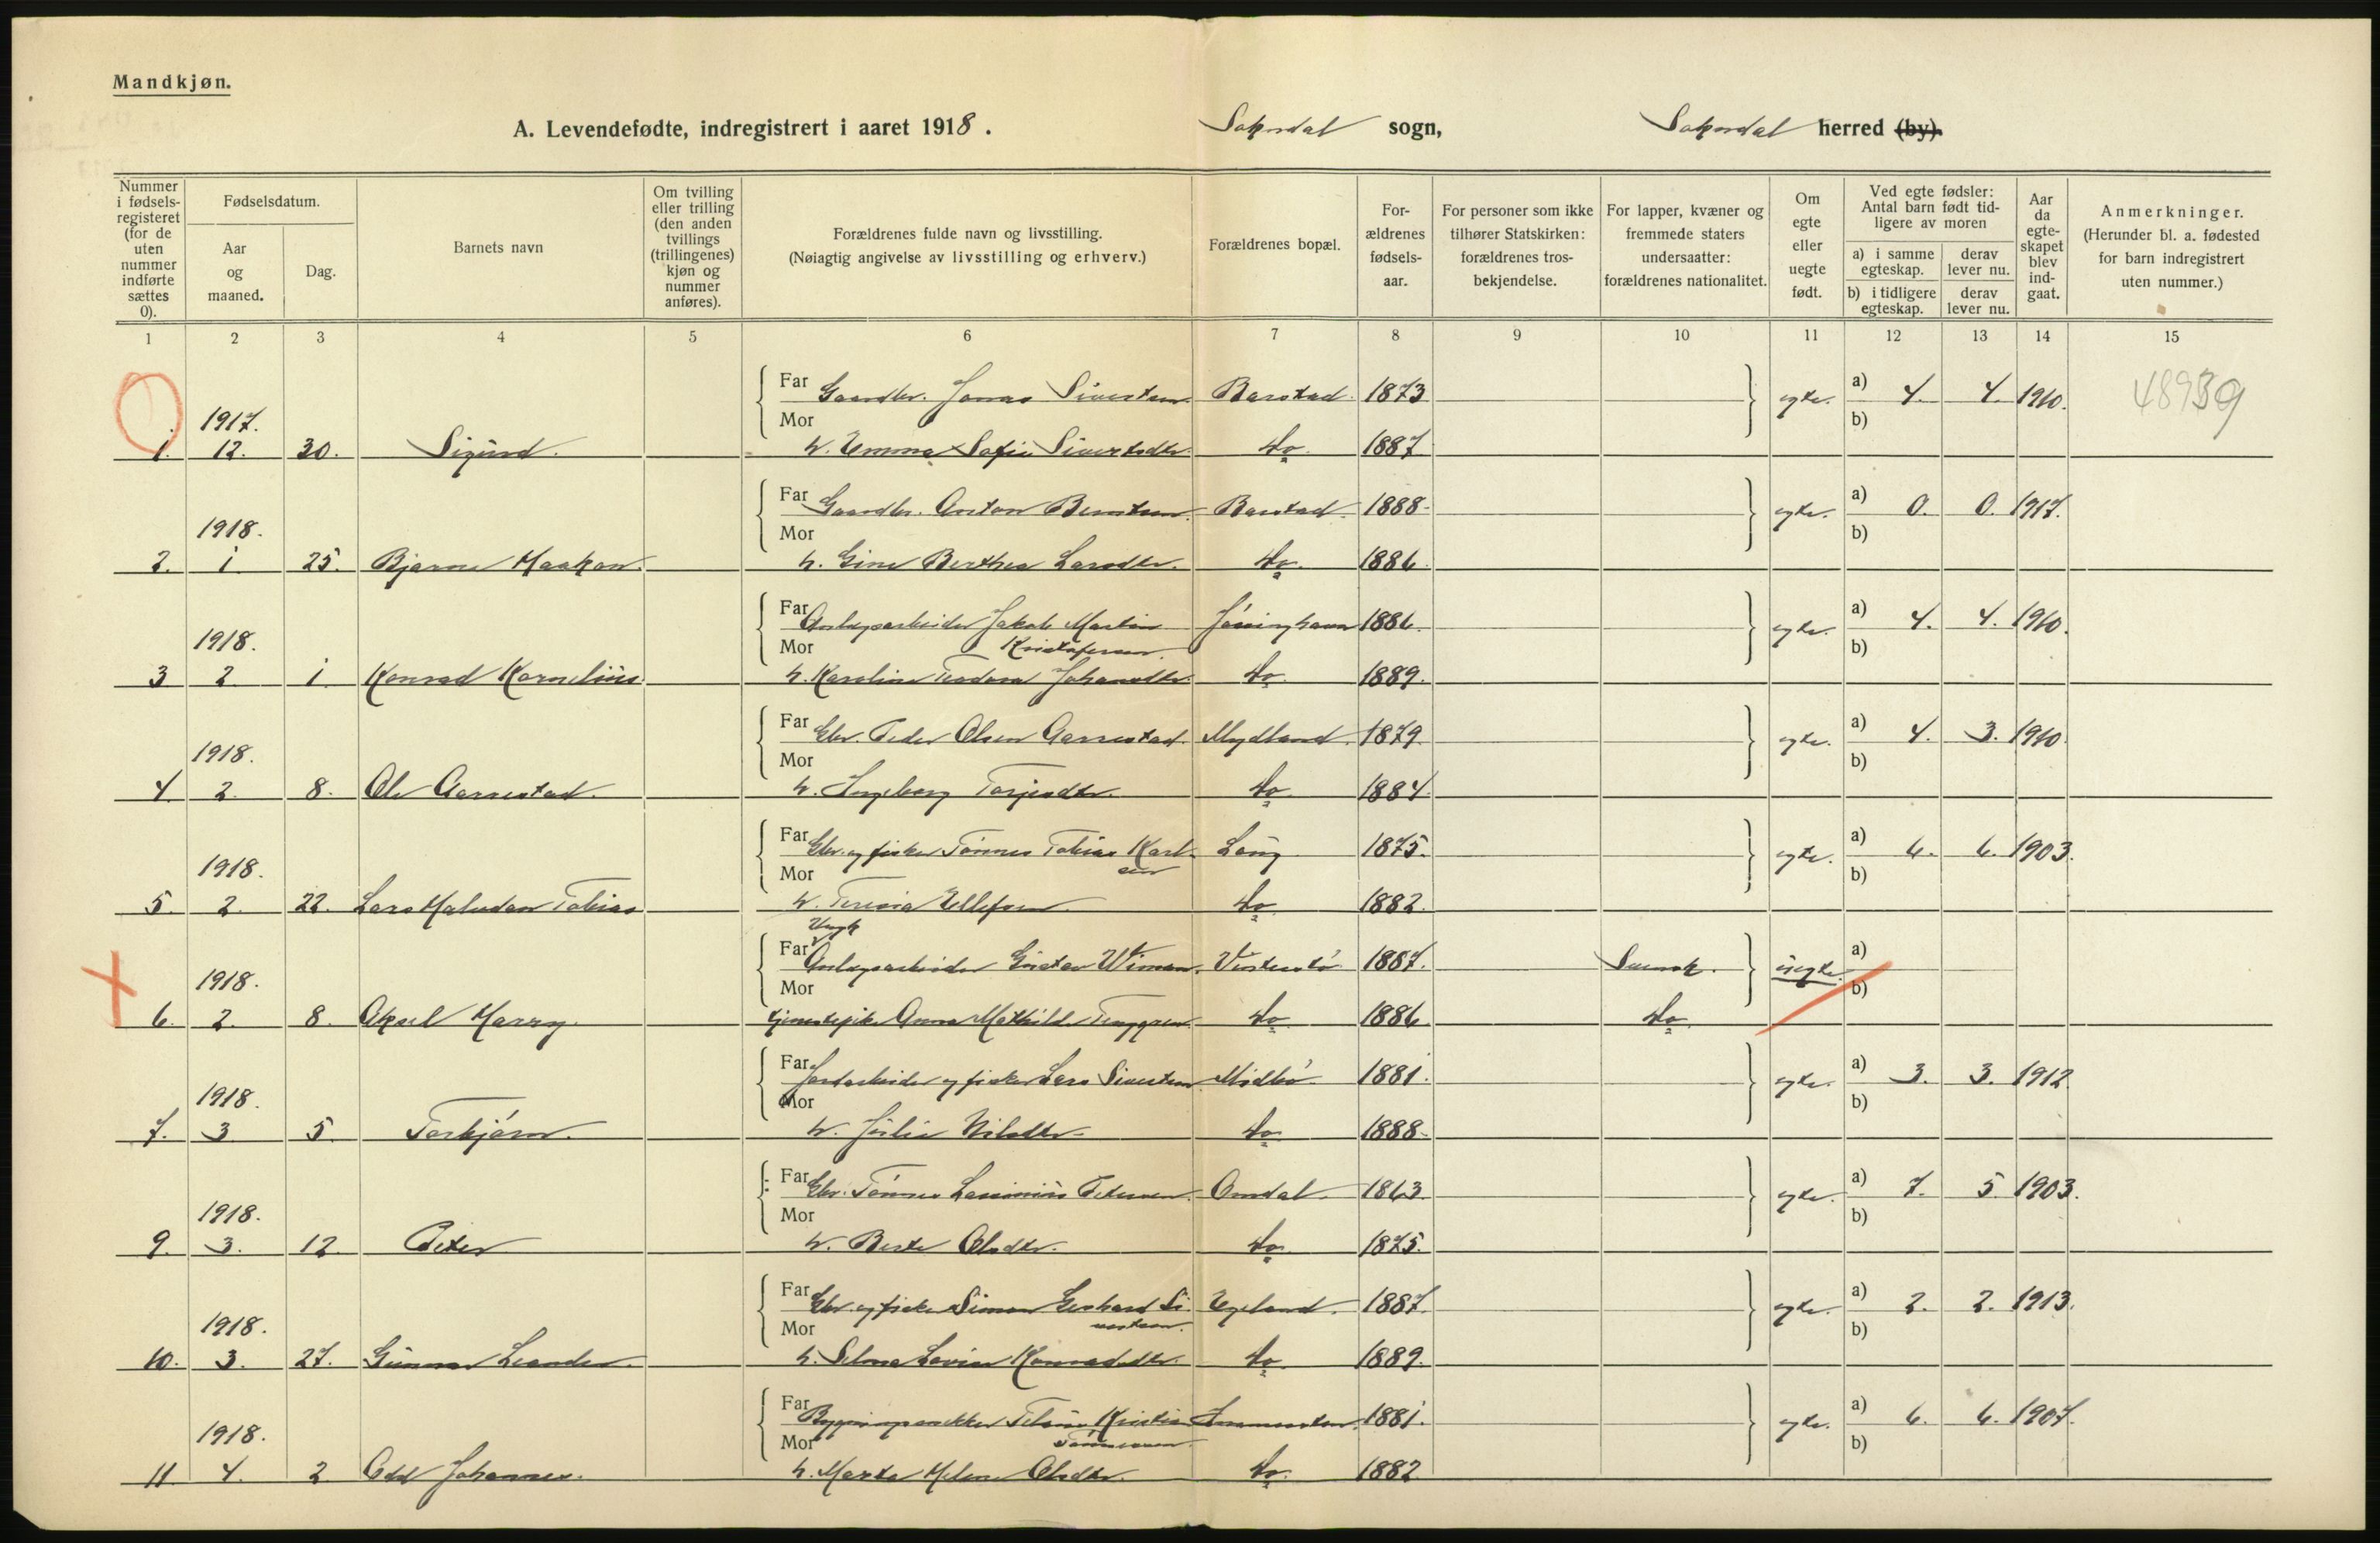 Mandkjøn.
A. Levendefødte, indregistrert i aaret 1918. Sokndal sogn, Sokndal herred (by).
Nummer i fødselsregisteret (for de uten nummer indførte sættes 0).
Fødselsdatum.
Aar og maaned.
Dag.
Barnets navn
Om tvilling eller trilling (den anden tvillings (trillingenes) kjøn og nummer anføres).
Forældrenes fulde navn og livsstilling. (Nøiagtig angivelse av livsstilling og erhverv.)
Forældrenes bopæl.
Forældrenes fødselsaar.
For personer som ikke tilhører Statskirken: forældrenes trosbekjendelse.
For lapper, kvæner og fremmede staters undersaatter: forældrenes nationalitet.
Om egte eller uegte født.
Ved egte fødsler: Antal barn født tidligere av moren
a) i samme egteskap. derav lever nu.
b) i tidligere egteskap. derav lever nu.
Aar da egteskapet blev indgaat.
Anmerkninger. (Herunder bl. a. fødested for barn indregistrert uten nummer.)
1 2 3 4 5 6 7 8 9 10 11 12 13 14 15
Far Gaardbr. Jonas Sivertsen Barstad. 1873 egte. a) 4. 4. 1910. 48939
1917.
Mor b)
1. 12. 30. Sigurd. h. Emma Sofie Sivertsdtr. do. 1887
Far Gaardbr. Anton Berntsen. Barstad. 1888. egte. a) 0. 0. 1917.
1918.
Mor b)
2. 1 25. Bjarne Haakon. h. Gine Berthea Larsdtr. do. 1886.
Far Anlægsarbeider Jakob Martin Jøssinghavn 1886. egte. a) 4. 4. 1910.
1918.
Mor Kristofersen. b)
3 2 1 Konrad Kornelius h. Karoline Teodora Johansdtr. do. 1889.
Far Gbr. Peder Olsen Aarrestad. Mydland. 1879. egte. a) 4. 3. 1910.
1918.
Mor b)
4 2. 8. Ole Aarrestad. h. Ingeborg Torjesdtr. do. 1884.
Far Gbr. og fisker Tønnes Tobias Karl- Laug 1875. egte. a) 6. 6. 1903.
1918.
Mor sen b)
5. 2. 22. Lars Tobias h. Teresia Ellefsen do 1882.
Ungk
Far Anlægsarbeider Gustav Wiman. 1887. Svensk. uegte. a)
1918.
Mor b)
6. 2. 8. Aksel Harry. tjenestepike Anna Mathilde Tenggren. do 1886. do.
Far Jordarbeider og fisker Lars Sivertsen Midbø 1881. egte. a) 3. 3. 1912
1918.
Mor b)
7. 3 5. Torbjørn. h. Julie Nilsdtr. do 1888.
Far Gbr. Tønnes Pedersen. Omdal. 1863. egte. a) 7. 5 1903.
1918.
Mor b)
9. 3. 12. Peter h. Berte Olsdtr. do. 1875.
Far Gbr. og fisker Simon Gerhard Si- Egeland. 1887. egte. a) 2. 2. 1913.
1918.
Mor vertsen. b)
10. 3. 27. Gunnar Leander. h. Selma Lovise Konradsdtr. do. 1889.
Far Bygningssnekker Kristian 1881. egte. a) 6. 6. 1907.
1918.
Mor Tønnessen. b)
11 4. 2 Odd Johannes. h. Marta Helene Olsdtr. do. 1882